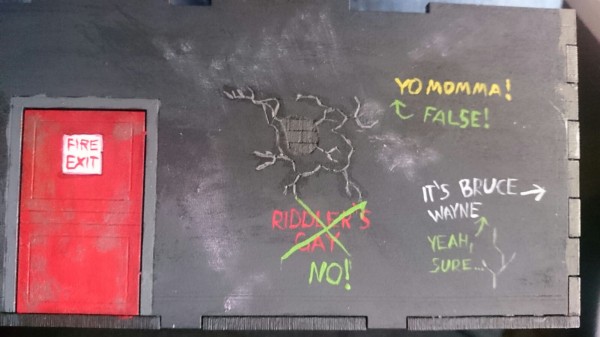 FIRE
EXIT
YO MOMMA!
FALSE!
RIDDLER'S
GAY
NO!
IT'S BRUCE
WAYNE
YEAH,
SURE...